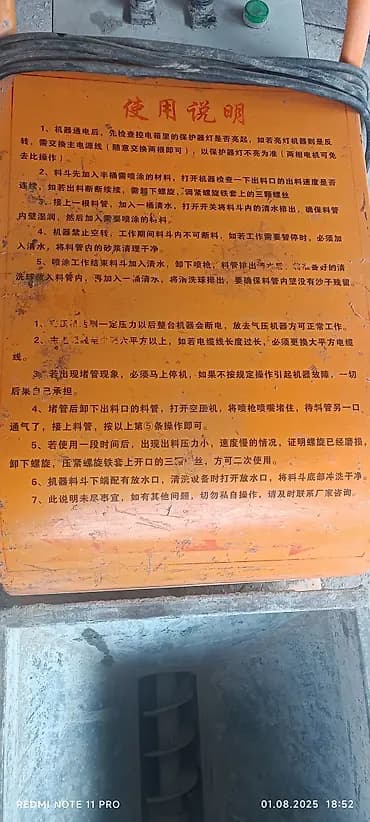 使用说明
1、机器通电后，先检查控电箱里的保护器灯是否亮起，如若亮灯机器则是反
转，需交换主电源线（随意交换两根即可），以保护器灯不亮为准（两相电机可免
去比操作）。
2、料斗先加入半桶需喷涂的材料，打开机器检查一下出料口的出料速度是否
连续，如若出料断断续续，需卸下螺旋，调紧螺旋铁套上的三颗螺丝
3、接上一根料管，加入一桶清水，打开开关将料斗内的清水排出，确保料管
内壁湿润，然后加入需要喷涂的材料。
4、机器禁止空转，工作期间料斗内不可断料，如若工作需要暂停时，必须加
入清水，将料管内的砂浆清理干净。
5、喷涂工作结束料斗加入清水，卸下喷枪，料管排出清水后，将准备好的清
洗球放入料管内，再加入一桶清水，将清洗球排出，要确保料管内壁没有沙子残留。
1、达到一定压力以后整台机器会断电，放去气压机器方可正常工作。
2、六平方以上，如若电缆线长度过长，必须更换大平方电缆
线。
3、若出现堵管现象，必须马上停机，如果不按规定操作引起机器故障，一切
后果自己承担。
4、堵管后卸下出料口的料管，打开空压机，将喷枪喷嘴堵住，待料管另一口
通气了，接上料管，按以上第⑤条操作即可。
5、若使用一段时间后，出现出料压力小，速度慢的情况，证明螺旋已经磨损，
卸下螺旋，压紧螺旋铁套上开口的三颗螺丝，方可二次使用。
6、机器料斗下端配有放水口，清洗设备时打开放水口，将料斗底部冲洗干净。
7、此说明未尽事宜，如有其他问题，切勿私自操作，请及时联系厂家咨询。
REDMI NOTE 11 PRO
01.08.2025 18:52